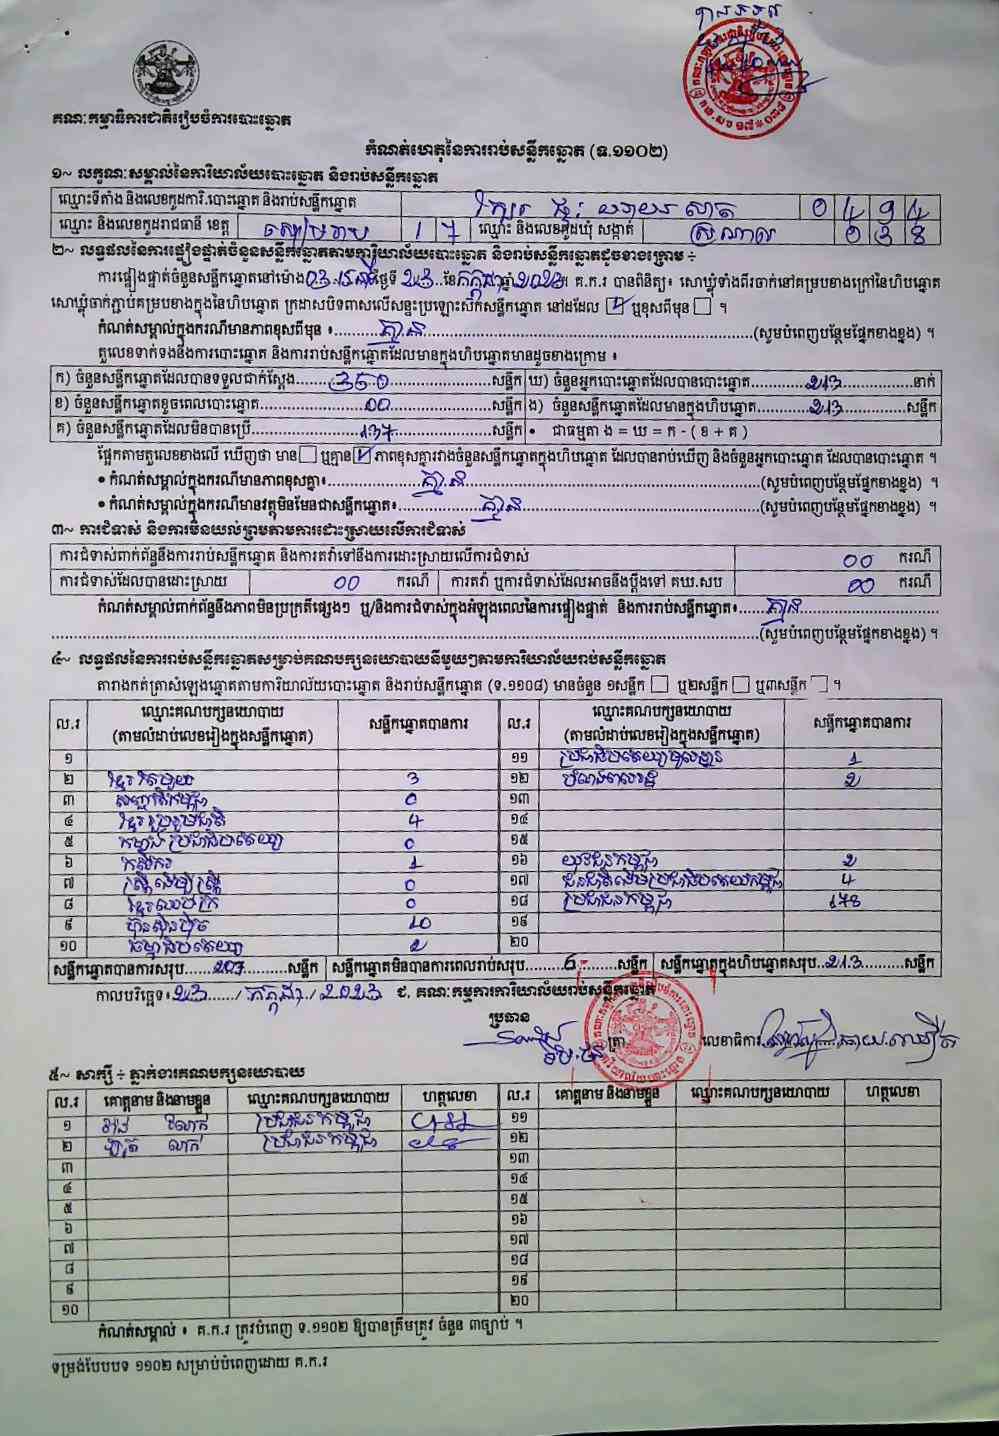 បានទទួល
គណៈកម្មាធិការជាតិរៀបចំការបោះឆ្នោត
កំណត់ហេតុនៃការរាប់សន្លឹកឆ្នោត (ទ.១១០២)
១~ លក្ខណៈសម្គាល់នៃការិយាល័យបោះឆ្នោត និងរាប់សន្លឹកឆ្នោត
ឈ្មោះទីតាំង និងលេខកូដការិ.បោះឆ្នោត និងរាប់សន្លឹកឆ្នោត 0 4 9 4
ឈ្មោះ និងលេខកូដរាជធានី ខេត្ត សៀមរាប 1 7 ឈ្មោះ និងលេខកូដឃុំ សង្កាត់ ស្រណាល 0 3 8
២~ លទ្ធផលនៃការផ្ទៀងផ្ទាត់ចំនួនសន្លឹកឆ្នោតតាមការិយាល័យបោះឆ្នោត និងរាប់សន្លឹកឆ្នោតដូចខាងក្រោម ÷
ការផ្ទៀងផ្ទាត់ចំនួនសន្លឹកឆ្នោតនៅម៉ោង 03 ថ្ងៃទី 23 ខែ កក្កដា ឆ្នាំ 2023 គ.ក.រ បានពិនិត្យ៖ សោឃ្លុំទាំងពីរចាក់នៅគម្របខាងក្រៅនៃហិបឆ្នោត
សោឃ្លុំចាក់ភ្ជាប់គម្របខាងក្នុងនៃហិបឆ្នោត ក្រដាសបិទពាសលើសន្ទះប្រឡោះសឹកសន្លឹកឆ្នោត នៅដដែល ☑ ឬខុសពីមុន ☐ ។
កំណត់សម្គាល់ក្នុងករណីមានភាពខុសពីមុន ៖ គ្មាន (សូមបំពេញបន្ថែមផ្នែកខាងខ្នង) ។
តួលេខទាក់ទងនឹងការបោះឆ្នោត និងការរាប់សន្លឹកឆ្នោតដែលមានក្នុងហិបឆ្នោតមានដូចខាងក្រោម ៖
ក) ចំនួនសន្លឹកឆ្នោតដែលបានទទួលជាក់ស្តែង 350 សន្លឹក ឃ) ចំនួនអ្នកបោះឆ្នោតដែលបានបោះឆ្នោត 213 នាក់
ខ) ចំនួនសន្លឹកឆ្នោតខូចពេលបោះឆ្នោត 00 សន្លឹក ង) ចំនួនសន្លឹកឆ្នោតដែលមានក្នុងហិបឆ្នោត 213 សន្លឹក
គ) ចំនួនសន្លឹកឆ្នោតដែលមិនបានប្រើ 137 សន្លឹក • ជាធម្មតា ង = ឃ = ក - ( ខ + គ )
ផ្អែកតាមតួលេខខាងលើ ឃើញថា មាន ☐ ឬគ្មាន ☑ ភាពខុសគ្នារវាងចំនួនសន្លឹកឆ្នោតក្នុងហិបឆ្នោត ដែលបានរាប់ឃើញ និងចំនួនអ្នកបោះឆ្នោត ដែលបានបោះឆ្នោត ។
• កំណត់សម្គាល់ក្នុងករណីមានភាពខុសគ្នា៖ គ្មាន (សូមបំពេញបន្ថែមផ្នែកខាងខ្នង) ។
• កំណត់សម្គាល់ក្នុងករណីមានវត្ថុមិនមែនជាសន្លឹកឆ្នោត៖ គ្មាន (សូមបំពេញបន្ថែមផ្នែកខាងខ្នង) ។
៣~ ការជំទាស់ និងការមិនយល់ព្រមតាមការដោះស្រាយលើការជំទាស់
ការជំទាស់ពាក់ព័ន្ធនឹងការរាប់សន្លឹកឆ្នោត និងការតវ៉ាទៅនឹងការដោះស្រាយលើការជំទាស់ 00 ករណី
ការជំទាស់ដែលបានដោះស្រាយ 00 ករណី ការតវ៉ា ឬការជំទាស់ដែលអាចនឹងប្តឹងទៅ គឃ.សប 00 ករណី
កំណត់សម្គាល់ពាក់ព័ន្ធនឹងភាពមិនប្រក្រតីផ្សេងៗ ឬ/និងការជំទាស់ក្នុងអំឡុងពេលនៃការផ្ទៀងផ្ទាត់ និងការរាប់សន្លឹកឆ្នោត៖ គ្មាន
(សូមបំពេញបន្ថែមផ្នែកខាងខ្នង) ។
៤~ លទ្ធផលនៃការរាប់សន្លឹកឆ្នោតសម្រាប់គណបក្សនយោបាយនីមួយៗតាមការិយាល័យរាប់សន្លឹកឆ្នោត
តារាងកត់ត្រាសំឡេងឆ្នោតតាមការិយាល័យបោះឆ្នោត និងរាប់សន្លឹកឆ្នោត (ទ.១១០៨) មានចំនួន ១សន្លឹក ☐ ឬ២សន្លឹក ☐ ឬ៣សន្លឹក ☐ ។
ល.រ ឈ្មោះគណបក្សនយោបាយ (តាមលំដាប់លេខរៀងក្នុងសន្លឹកឆ្នោត) សន្លឹកឆ្នោតបានការ ល.រ ឈ្មោះគណបក្សនយោបាយ (តាមលំដាប់លេខរៀងក្នុងសន្លឹកឆ្នោត) សន្លឹកឆ្នោតបានការ
១ ១១ ប្រជាធិបតេយ្យមូលដ្ឋាន 1
២ ខ្មែរតែមួយ 3 ១២ បំណងពលរដ្ឋ 2
៣ សញ្ជាតិកម្ពុជា 0 ១៣
៤ ខ្មែររួបរួមជាតិ 4 ១៤
៥ កម្លាំងប្រជាធិបតេយ្យ 0 ១៥
៦ កសិករ 1 ១៦ យុវជនកម្ពុជា 2
៧ ស្ត្រីដើម្បីស្ត្រី 0 ១៧ ជនជាតិដើមប្រជាធិបតេយ្យកម្ពុជា 4
៨ ខ្មែរឈប់ក្រ 0 ១៨ ប្រជាជនកម្ពុជា 178
៩ ហ៊្វុនស៊ិនប៉ិច 10 ១៩
១០ ធម្មាធិបតេយ្យ 2 ២០
សន្លឹកឆ្នោតបានការសរុប 207 សន្លឹក សន្លឹកឆ្នោតមិនបានការពេលរាប់សរុប 6 សន្លឹក សន្លឹកឆ្នោតក្នុងហិបឆ្នោតសរុប 213 សន្លឹក
កាលបរិច្ឆេទ៖ 23 / កក្កដា / 2023 ជ. គណៈកម្មការការិយាល័យរាប់សន្លឹកឆ្នោត
ប្រធាន
ត្រា លេខាធិការ
៥~ សាក្សី ÷ ភ្នាក់ងារគណបក្សនយោបាយ
ល.រ គោត្តនាម និងនាមខ្លួន ឈ្មោះគណបក្សនយោបាយ ហត្ថលេខា ល.រ គោត្តនាម និងនាមខ្លួន ឈ្មោះគណបក្សនយោបាយ ហត្ថលេខា
១ ប្រជាជនកម្ពុជា ១១
២ ប្រជាជនកម្ពុជា ១២
៣ ១៣
៤ ១៤
៥ ១៥
៦ ១៦
៧ ១៧
៨ ១៨
៩ ១៩
១០ ២០
កំណត់សម្គាល់ ៖ គ.ក.រ ត្រូវបំពេញ ទ.១១០២ ឱ្យបានត្រឹមត្រូវ ចំនួន ៣ច្បាប់ ។
ទម្រង់បែបបទ ១១០២ សម្រាប់បំពេញដោយ គ.ក.រ